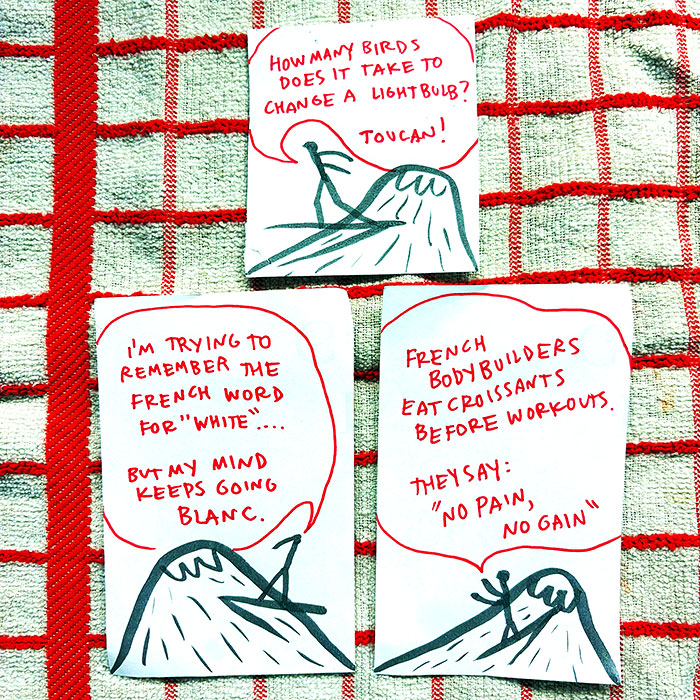 HOW MANY BIRDS
DOES IT TAKE TO
CHANGE A LIGHTBULB?
TOUCAN!
I'M TRYING TO
REMEMBER THE
FRENCH WORD
FOR "WHITE"....
BUT MY MIND
KEEPS GOING
BLANC.
FRENCH
BODYBUILDERS
EAT CROISSANTS
BEFORE WORKOUTS.
THEY SAY:
"NO PAIN,
NO GAIN"